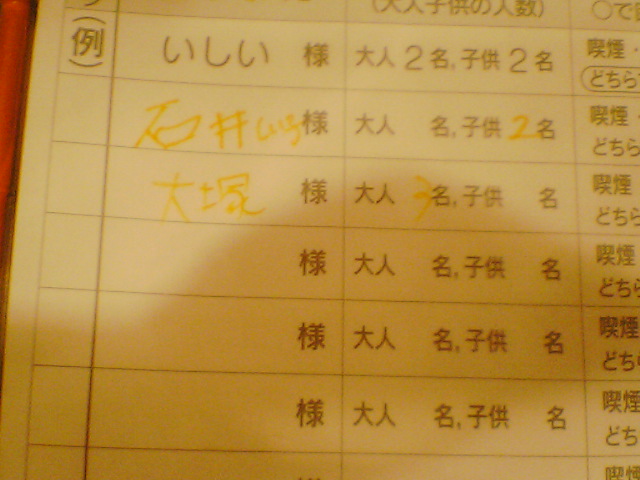 (大人子供の人数) ○で
(例) いしい 様 大人 2 名, 子供 2 名 喫煙・ どちら
石井 様 大人 名, 子供 2 名 喫煙・ どちら
大塚 様 大人 3 名, 子供 名 喫煙 どちら
様 大人 名, 子供 名 喫煙 どちら
様 大人 名, 子供 名 喫煙 どちら
様 大人 名, 子供 名 喫煙 どち
喫煙